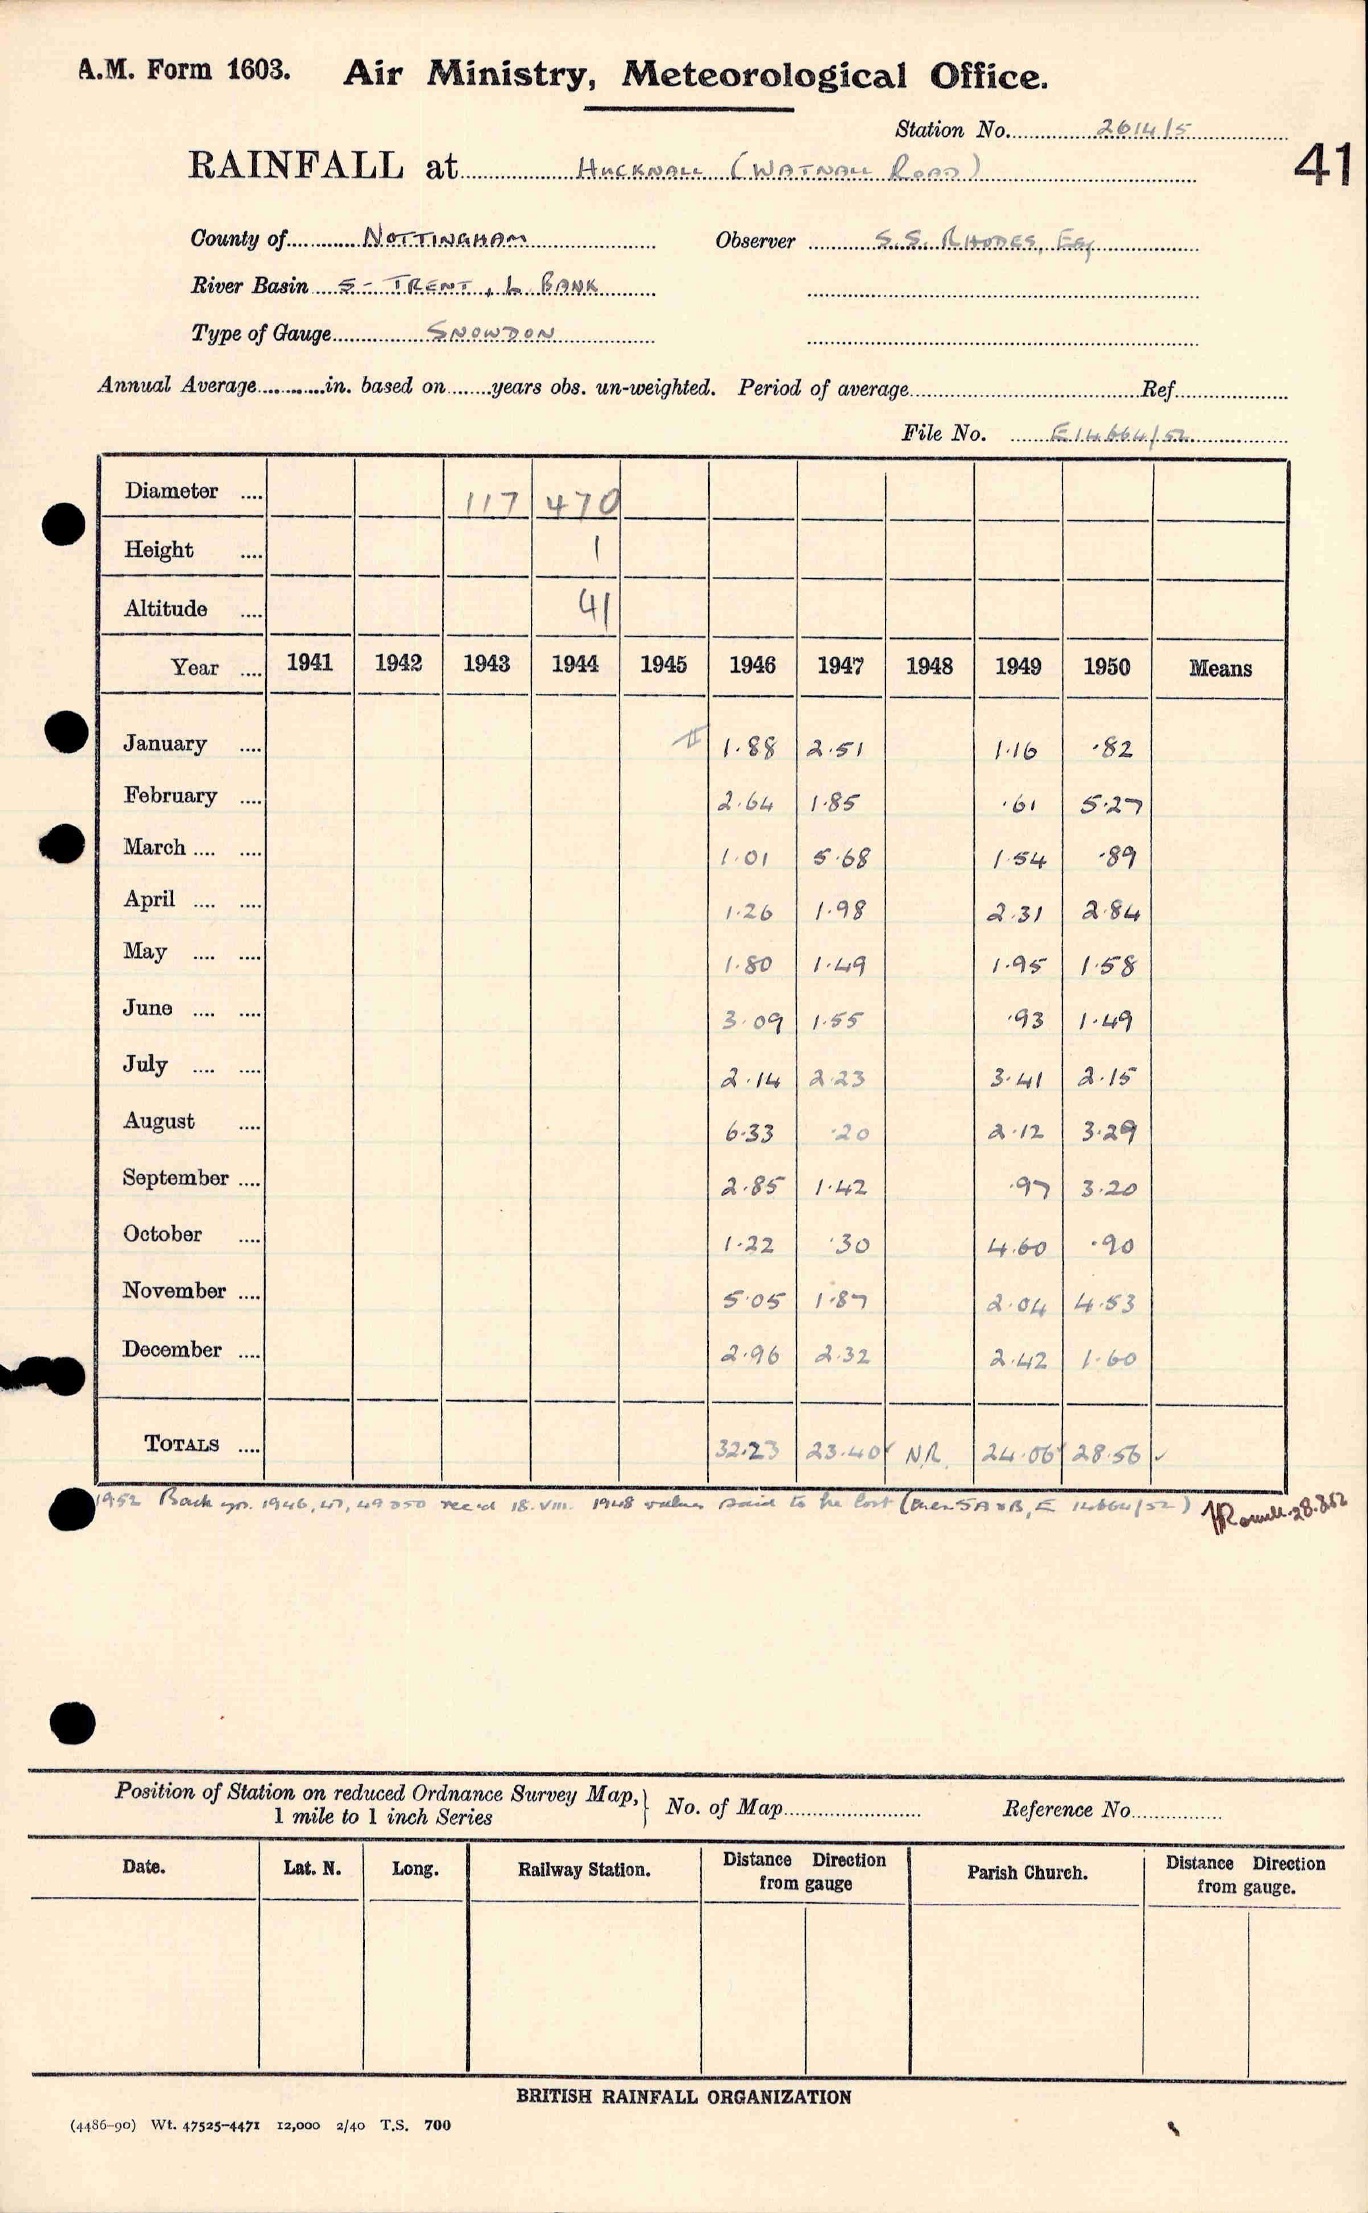 A.M. Form 1603. Air Ministry, Meteorological Office.
Station No. 2614/5
41
RAINFALL at HUCKNALL (WATNALL ROAD)
County of NOTTINGHAM Observer S.S. RHODES, Esq
River Basin 5 - TRENT, L BANK
Type of Gauge SNOWDON
Annual Average in. based on years obs. un-weighted. Period of average Ref
File No. E14664/52
Diameter 117 470
Height 1
Altitude 41
Year 1941 1942 1943 1944 1945 1946 1947 1948 1949 1950 Means
January 1.88 2.51 1.16 .82
February 2.64 1.85 .61 5.27
March 1.01 5.68 1.54 .89
April 1.26 1.98 2.31 2.84
May 1.80 1.49 1.95 1.58
June 3.09 1.55 .93 1.49
July 2.14 2.23 3.41 2.15
August 6.33 .20 2.12 3.29
September 2.85 1.42 .97 3.20
October 1.22 .30 4.60 .90
November 5.05 1.87 2.04 4.53
December 2.96 2.32 2.42 1.60
TOTALS 32.23 23.40 N.R. 24.06 28.56
1952 Back yrs. 1946, 47, 49 & 50 rec'd 18.VIII. 1948 values said to be lost ( 5A & B, E 14664/52) 28.8.52
Position of Station on reduced Ordnance Survey Map, 1 mile to 1 inch Series } No. of Map Reference No.
Date. Lat. N. Long. Railway Station. Distance from gauge Direction Parish Church. Distance Direction from gauge.
BRITISH RAINFALL ORGANIZATION
(4486-90) Wt. 47525-4471 12,000 2/40 T.S. 700